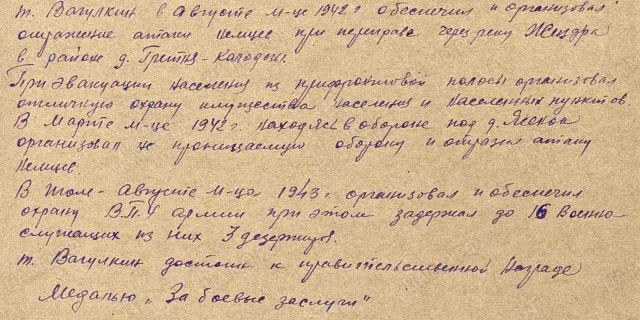 т. Вагулкин в Августе м-це 1942 г обеспечил и организовал
отражение атаки немцев при переправе через реку Жиздра
в районе д. Гретня - Колодези.
При эвакуации населения из прифронтовой полосы организовал
отличную охрану имущества населения и населенных пунктов.
В Марте м-це 1942 г. находясь в обороне под д. Ясенок
организовал не проницаемую оборону и отразил атаку
немцев.
В Июле - Августе м-ца 1943 г. организовал и обеспечил
охрану В.П.У армии при этом задержал до 16 Военно-
служащих из них 3 дезертиров.
т. Вагулкин достоин к правительственной награде
Медалью „За боевые заслуги"